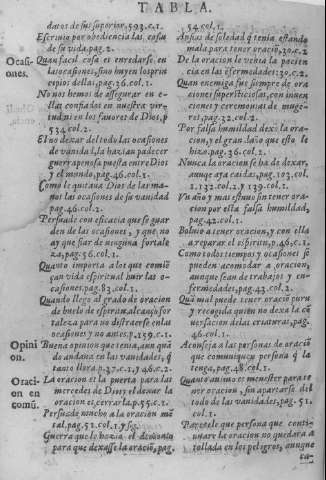 TABLA.
datos de sus superior, 593.c.1.
Escrivio por obediencia las cosas
de su vida, pag.2.
Ocasiones.
Quan facil cosa es enredarse en
las ocasiones, sino huyen los principios
dellas, pag.36.col.1.
No nos hemos de assegurar en ellas
confiados en nuestra virtud,
ni en los favores de Dios, p
534.col.2.
El no dexar del todo las ocasiones
de vanidad, la hazian padecer
guerra penosa puesta entre Dios
y el mundo, pag.46.col.1.
Como le quitava Dios de las manos
las ocasiones de su vanidad
pag.46.col.2.
Persuade con eficacia que se guarden
de las ocasiones, y que no
ay que fiar de ninguna fortaleza,
pag.56.col.1.
Quanto importa a los que comiẽçan
vida espiritual huir las ocasiones.
pag.83.col.1.
Quando llego al grado de oracion
de buelo de espiritu, alcanço fortaleza
para no distraerse en las
ocasiones y no antes. p.139.c.1.
Opinion.
Buena opinion que tenia, aun quãdo
andava en las vanidades, q̃
tanto llora. p.37.c.1. y 46.c.2.
Oracion en comũ.
La oracion es la puerta para las
mercedes de Dios, el dexar la
oracion es, cerrarla, p.55.c.1.
Persuade mucho a la oracion mẽtal.
pag.51.col.1. y sg.
Guerra que le hazia el demonio
para que dexasse la oraciõ, pag.
54.col.1.
Ansias de soledad q̃ tenia estando
mala para tener oraciõ, 30.c.2
De la oracion le venia la paciencia
en las ẽfermedades: 30.c.2.
Quan enemiga fue siempre de oraciones
supersticiosas, con invenciones
y ceremonias de mugeres,
pag.32.col.2.
Por falsa humildad dexò la oracion,
y el gran daño que esto le
hizo. pag.36.col.1.
Nunca la oracion se ha de dexar,
aunque aya caidas, pag.103.col.
1. 132.col.2. y 139.col.1.
Un año y mas estuvo sin tener oracion
por esta falsa humildad,
pag.42.col.1.
Bolvio a tener oracion, y con ella
a reparar el espiritu, p.46.c.1.
Como todos tiempos y ocasiones se
pueden acomodar a oracion,
aunque sean de trabajos y enfermedades,
pag.43.col.2.
Quã mal puede tener oraciõ pura
y recogida quien no dexa la cõversacion
de las criaturas, pag.
46.col.1.
Aconseja a las personas de oraciõ
que comuniquẽ con persona q̃ la
tenga, pag.48.col.1.
Quanto animo es menester para tener
oracion, sin apartarse del
todo de las vanidades, pag.51.
col.1.
Parecele que persona que continuare
la oracion no quedara atollada
en los peligros, aunque